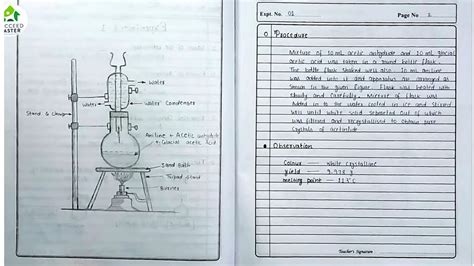 CCEED
ASTER
Water
Water
Water Condenser
Stand & Clamp
Aniline + Acetic anhydride
+ Glacial acetic acid
Sand Bath
Tripod Stand
Burner
Expt. No. 01
Page No 2
Procedure
Mixture of 10 mL acetic anhydride and 10 mL glacial
acetic acid was taken in a round bottle flask.
The bottle flask shaked well also 10 mL aniline
was added into it and apparatus are arranged as
shown in the given figure. Flask was heated with
steady and carefully. Mixture of flask was
added in to the water cooled in ice and stirred
well until white solid separated out of which
was filtered and recrystallised to obtain pure
crystals of acetinilide
Observation
Colour — White crystalline
yield — 9.978 g
melting point — 113°C
Teacher's Signature